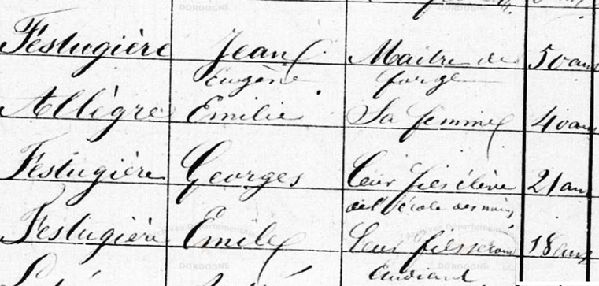 Festugière Jean Maître de 50 ans
Eugène forge
Allègre Emilie Sa femme 40 ans
Festugière Georges Leur fils élève 21 ans
de l'école des mines
Festugière Emile Leur fils second 18 ans
étudiant